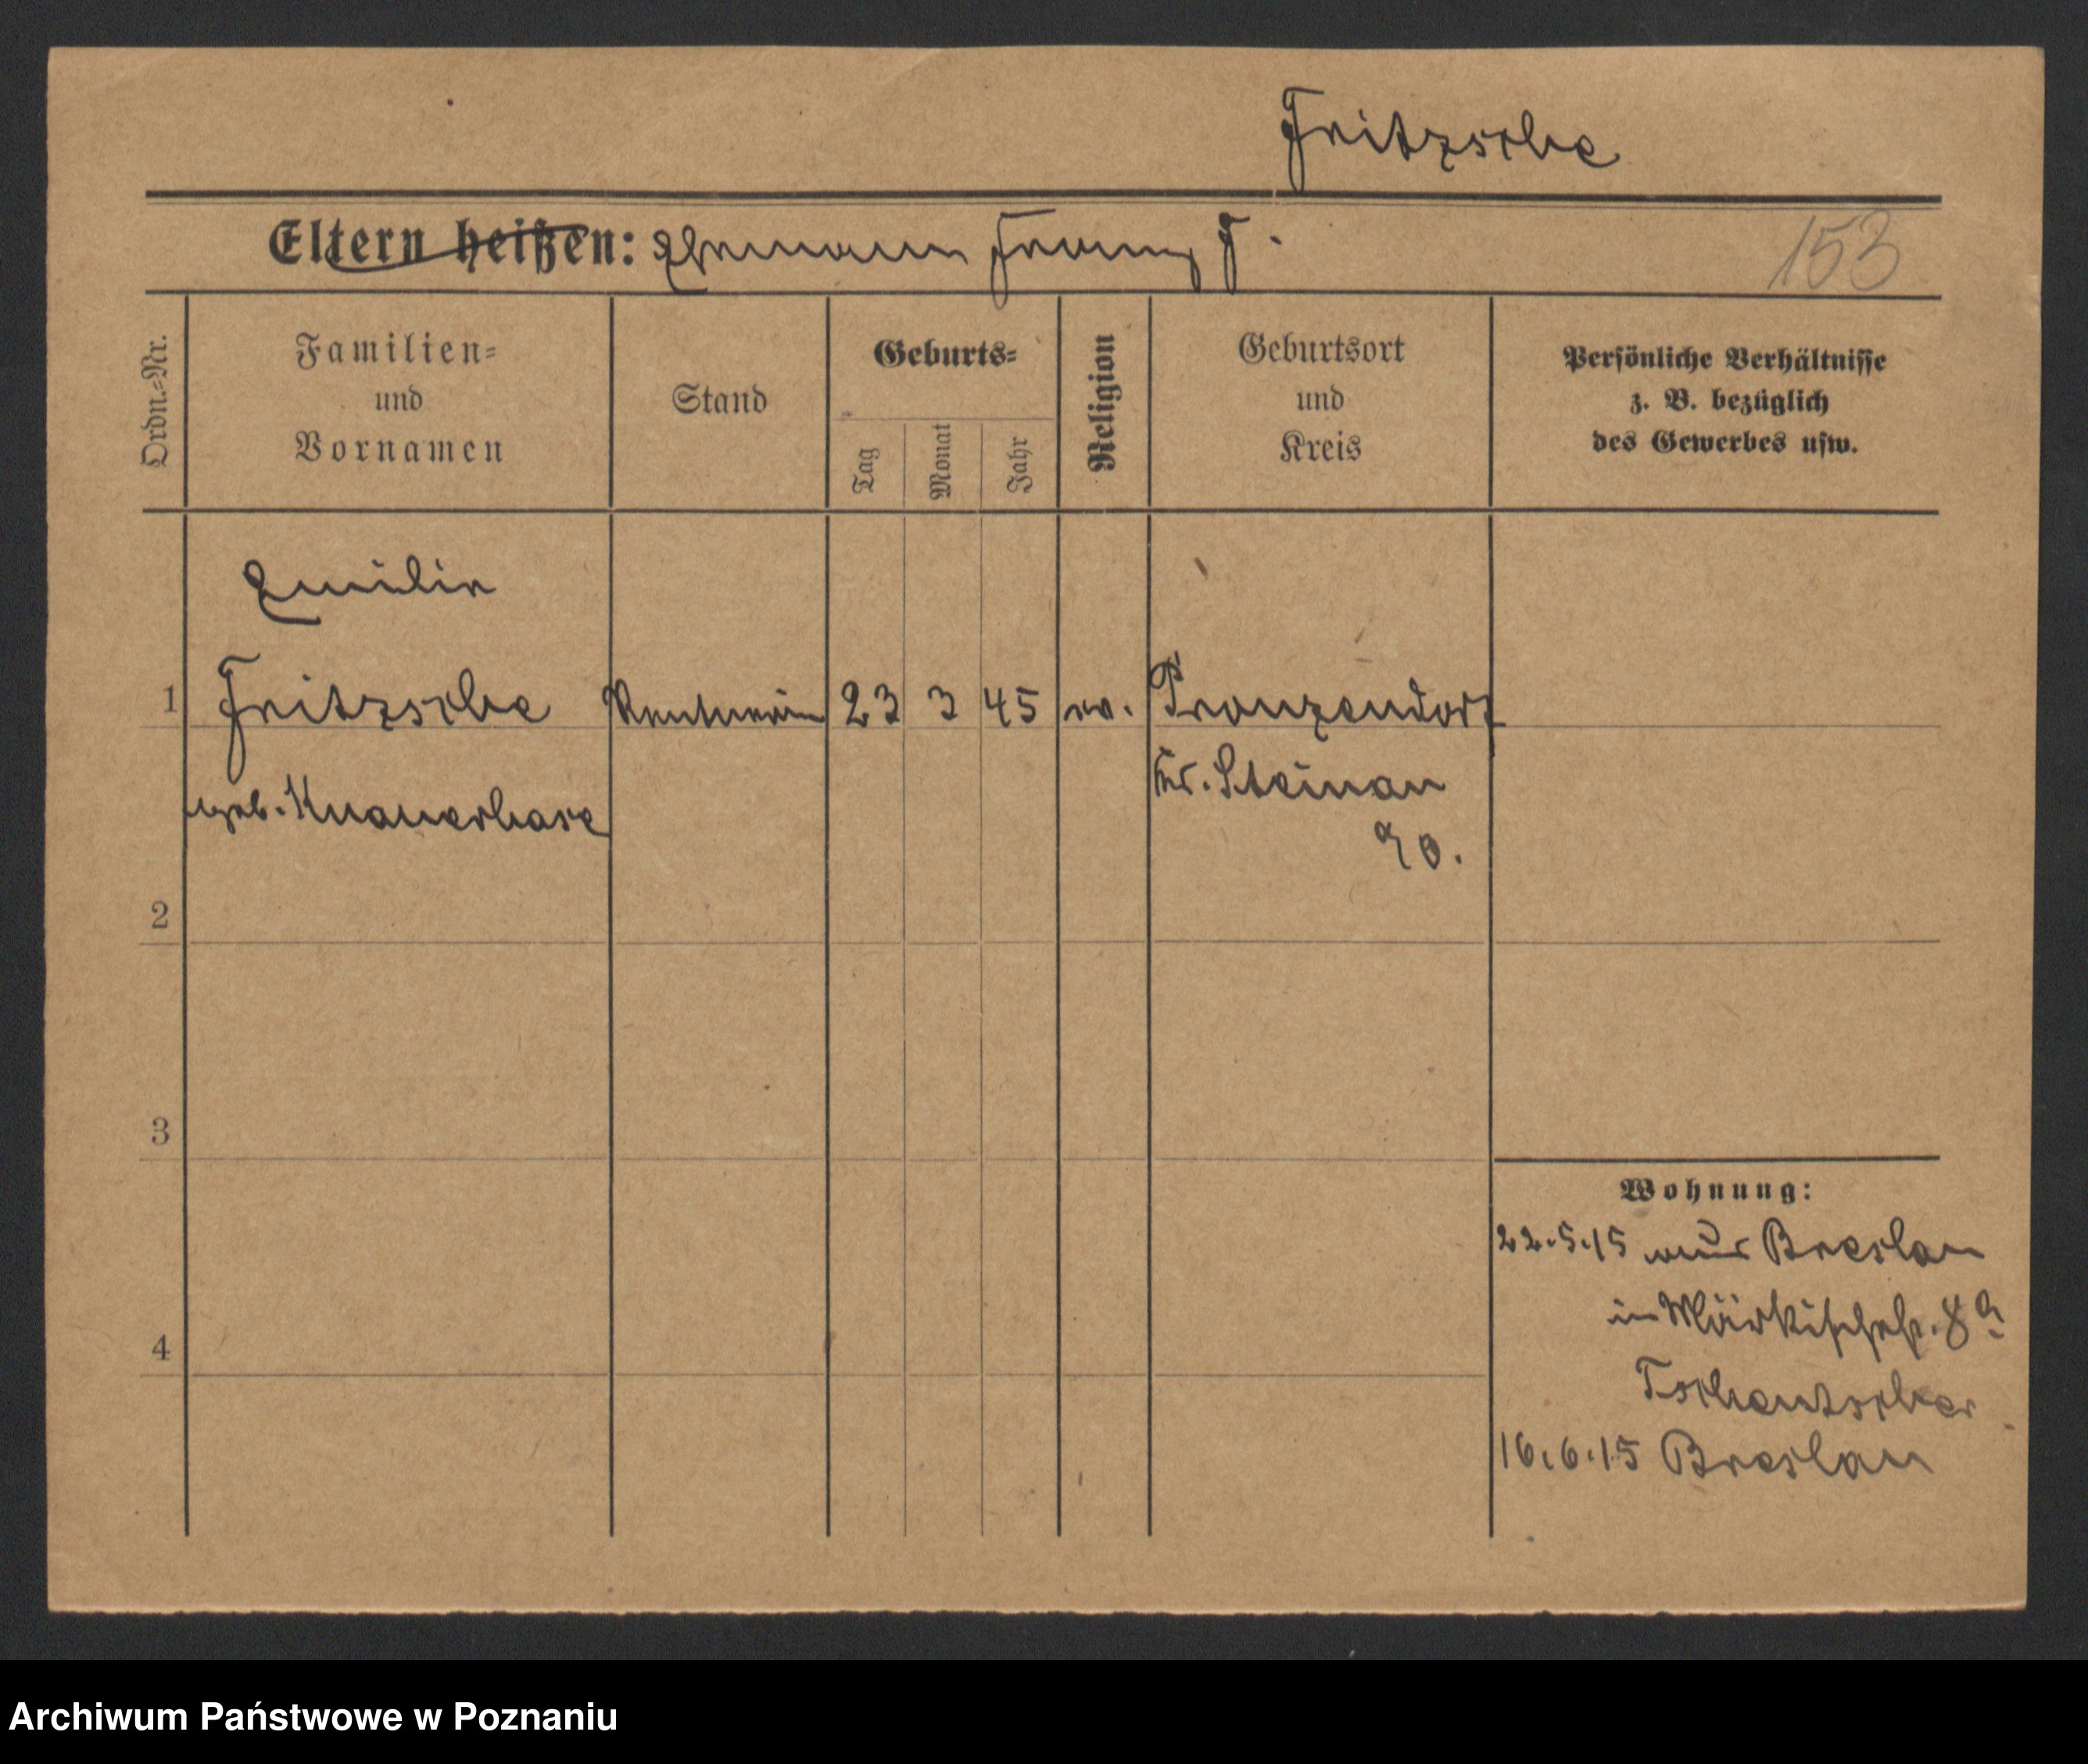 Fritzsche
Eltern heißen: Ehemann Franz F.
153
Ordn.=Nr.
Familien=
und
Vornamen
Stand
Geburts=
Tag
Monat
Jahr
Religion
Geburtsort
und
Kreis
Persönliche Verhältnisse
z. B. bezüglich
des Gewerbes usw.
Emilie
1 Fritzsche Rentnerin 23 3 45 ev. Pronzendorf
geb. Knauerhase
Kr. Steinau
2
3
4
Wohnung:
22.5.15 aus Breslau
in Märkischestr. 8a
Tschentscher
16.6.15 Breslau
Archiwum Państwowe w Poznaniu